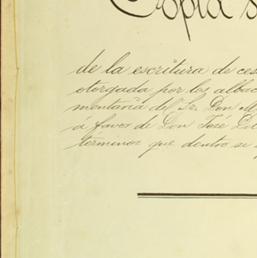 Copia s
de la escritura de ces
otorgada por los albac
mentaria del Sr. Don M
á favor de Don José
términos que dentro se